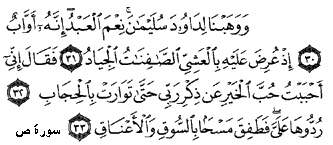 وَوَهَبْنَا لِدَاوُۥدَ سُلَيْمَٰنَۚ نِعْمَ ٱلْعَبْدُ إِنَّهُۥٓ أَوَّابٌ
٣٠ إِذْ عُرِضَ عَلَيْهِ بِٱلْعَشِىِّ ٱلصَّٰفِنَٰتُ ٱلْجِيَادُ ٣١ فَقَالَ إِنِّىٓ
أَحْبَبْتُ حُبَّ ٱلْخَيْرِ عَن ذِكْرِ رَبِّى حَتَّىٰ تَوَارَتْ بِٱلْحِجَابِ ٣٢
رُدُّوهَا عَلَىَّۖ فَطَفِقَ مَسْحًۢا بِٱلسُّوقِ وَٱلْأَعْنَاقِ ٣٣
سورة ص